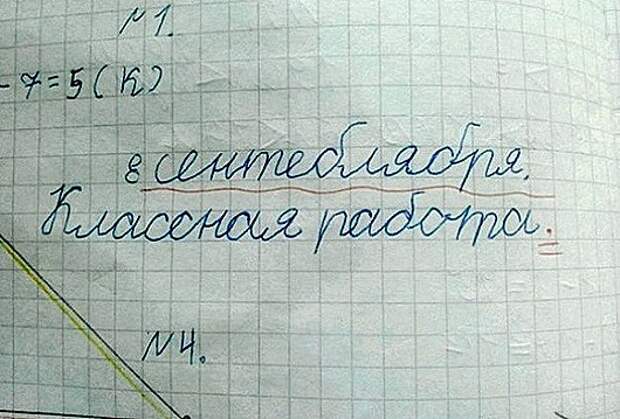 №1.
- 7 = 5 (к)
8 сентеблября.
Классная работа.
№4.